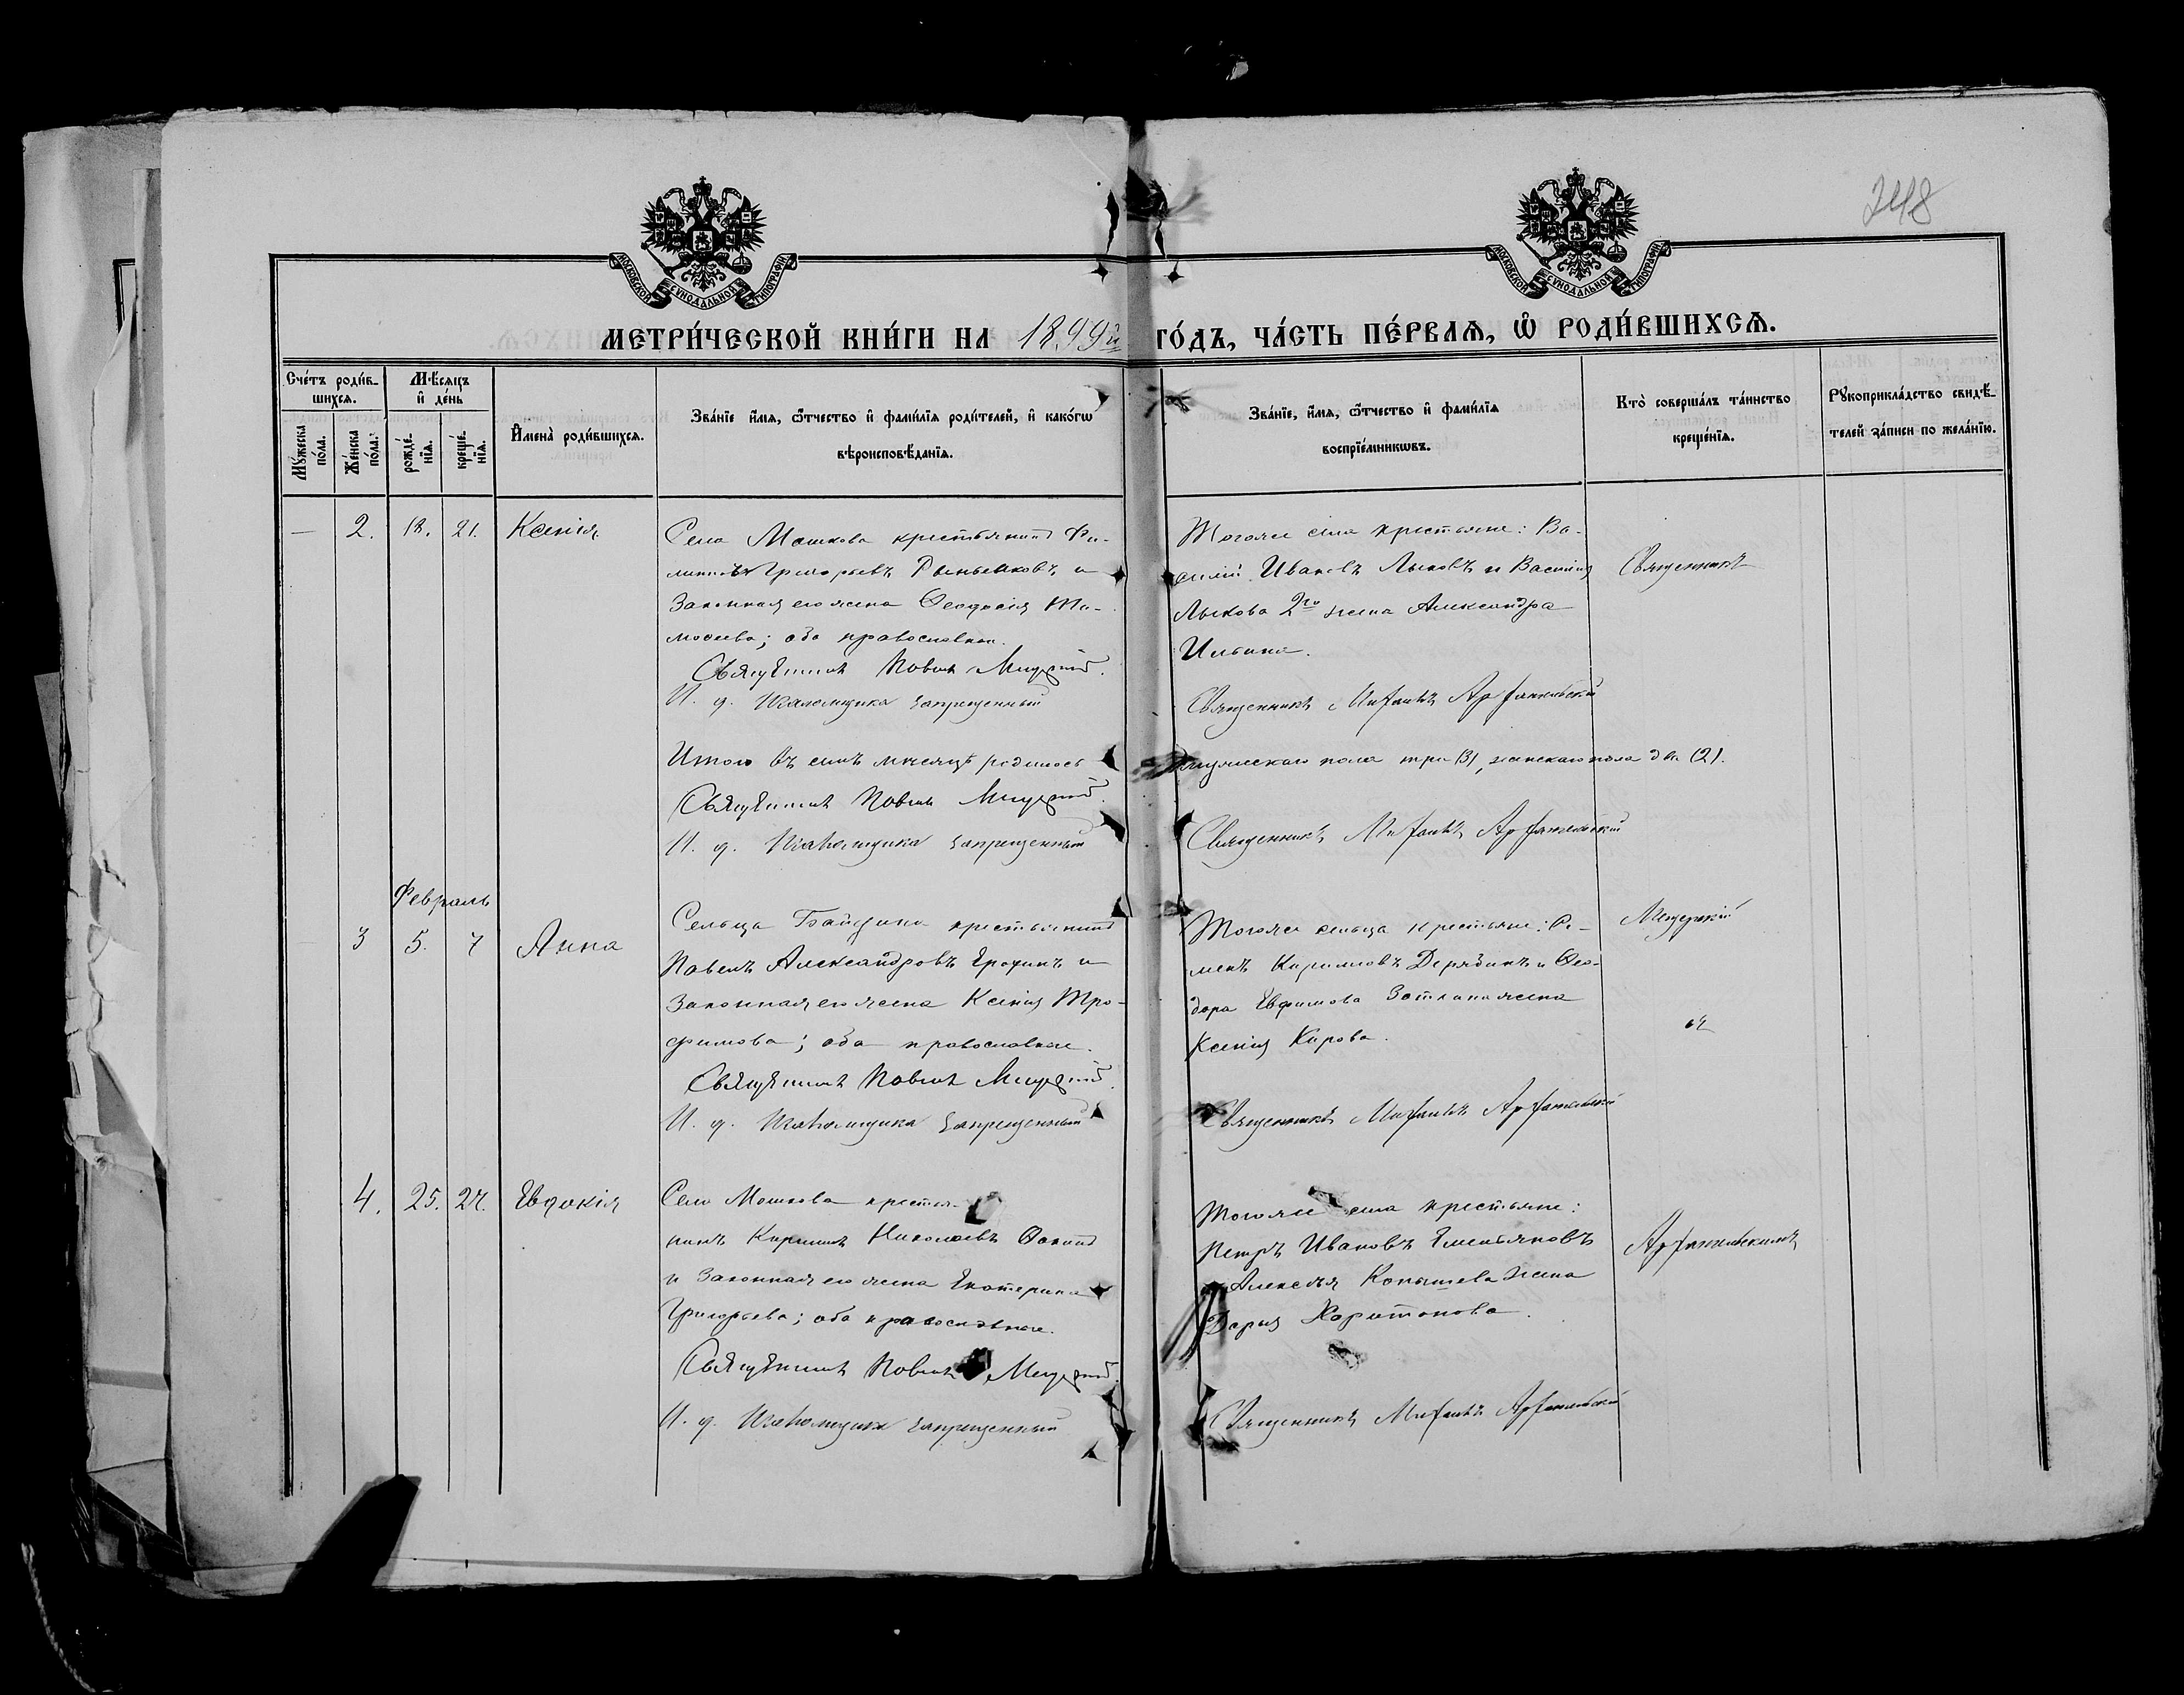 248
МОСКОВСКОЙ СѴНОДАЛЬНОЙ ТИПОГРАФІИ
МОСКОВСКОЙ СѴНОДАЛЬНОЙ ТИПОГРАФІИ
МЕТРИ́ЧЕСКОЙ КНИ́ГИ НА 1899й ГО́ДЪ, ЧА́СТЬ ПЕ́РВАѦ, Ѡ РОДИ́ВШИХСѦ.
Сче́тъ роди́в-
шихсѧ.
Мꙋ́жеска
по́ла.
Же́нска
по́ла.
Мѣ́сѧцъ
и де́нь
рожде́-
нїѧ.
креще́-
нїѧ.
Имена̀ роди́вшихсѧ.
Зва́нїе и́мѧ, ѻ҆́тчество и фами́лїѧ роди́телей, и како́гѡ
вѣроисповѣ́данїѧ.
Зва́нїе, и́мѧ, ѻ҆́тчество и фами́лїѧ
воспрїе́мникѡвъ.
Кто̀ соверша́лъ та́инство
креще́нїѧ.
Рꙋкоприкла́дство свидѣ́-
телей за́писи по жела́нїю.
— 2. 18. 21. Ксенія
Села Мошкова крестьянинъ Фи-
липпъ Григорьевъ и
законная его жена Ѳеодосія Ти-
моѳеева; оба православные.
Священникъ Павелъ Мещерскій.
И. д. Псаломщика Запрещенный
Тогоже села крестьяне: Ва-
силій Ивановъ Лыковъ и Василія
Лыкова 2го жена Александра
Ильина.
Священникъ Михаилъ Архангельскій
Священникъ
Итого въ семъ мѣсяцѣ родилось мужескаго пола три (3), женскаго пола два (2).
Священникъ Павелъ Мещерскій.
И. д. Псаломщика Запрещенный
Священникъ Михаилъ Архангельскій
Февраль
3 5. 7 Анна
Сельца крестьянинъ
Павелъ Александровъ Ерофинъ и
законная его жена Ксенія Тро-
фимова; оба православные.
Священникъ Павелъ Мещерскій.
И. д. Псаломщика Запрещенный
Тогоже сельца крестьяне: Се-
менъ Кирилловъ Дерябинъ и Ѳео-
дора Евфимова жена
Ксенія Карпова.
Священникъ Михаилъ Архангельскій
Мещерскій
съ
4. 25. 27. Евдокія
Села Мошкова крестья-
нинъ Кириллъ Николаевъ Ѳокинъ
и законная его жена Екатерина
Григорьева; оба православные.
Священникъ Павелъ Мещерскій.
И. д. Псаломщика Запрещенный
Тогоже села крестьяне:
Петръ Ивановъ Емельяновъ
и Алексѣя жена
Дарья Харитонова.
Священникъ Михаилъ Архангельскій
Архангельскимъ